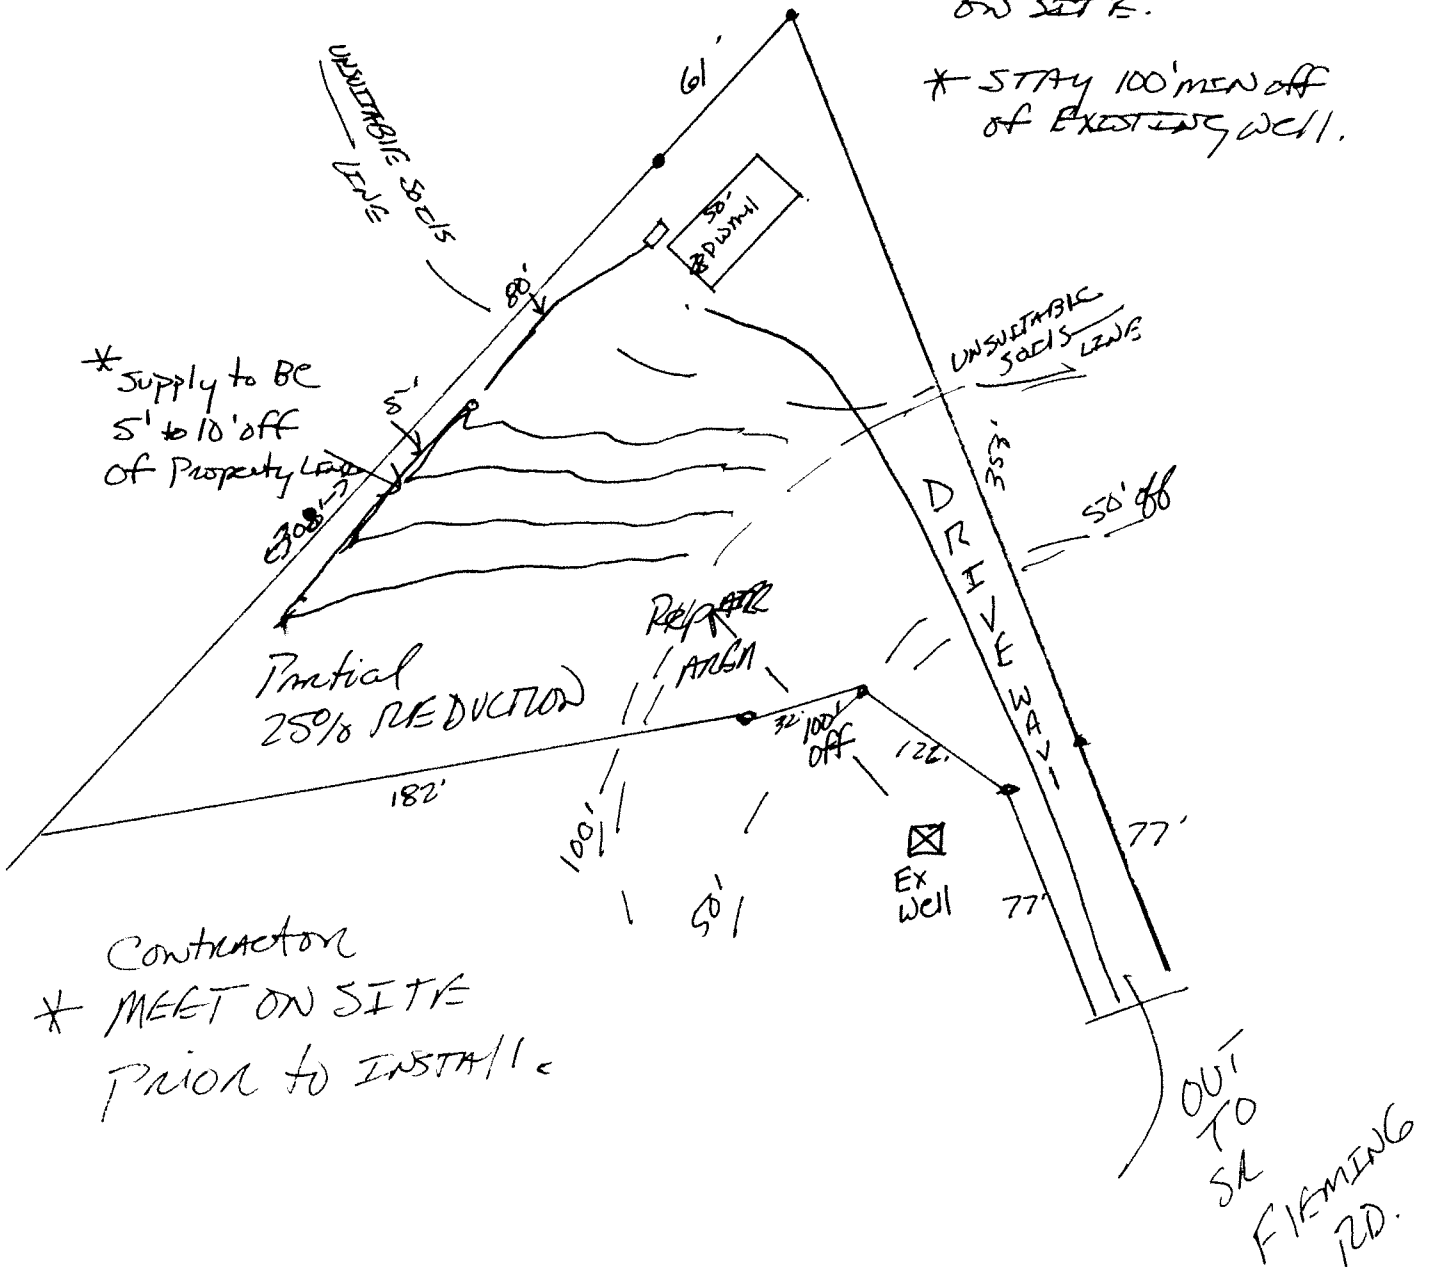 ON SITE.
* STAY 100' MIN off
of EXISTING well.
61'
UNSUITABLE SOILS
LINE
50'
80'
UNSUITABLE
SOILS
LINE
* Supply to BE
5' to 10' off
of Property Line
5'
308'
353'
50' off
DRIVEWAY
REPAIR
AREA
Partial
25% REDUCTION
32'
100'
off
122'
182'
100'
50'
Ex
Well
77'
77'
Contractor
* MEET ON SITE
PRIOR to INSTALL.
OUT
TO
SR
FlEMING
RD.